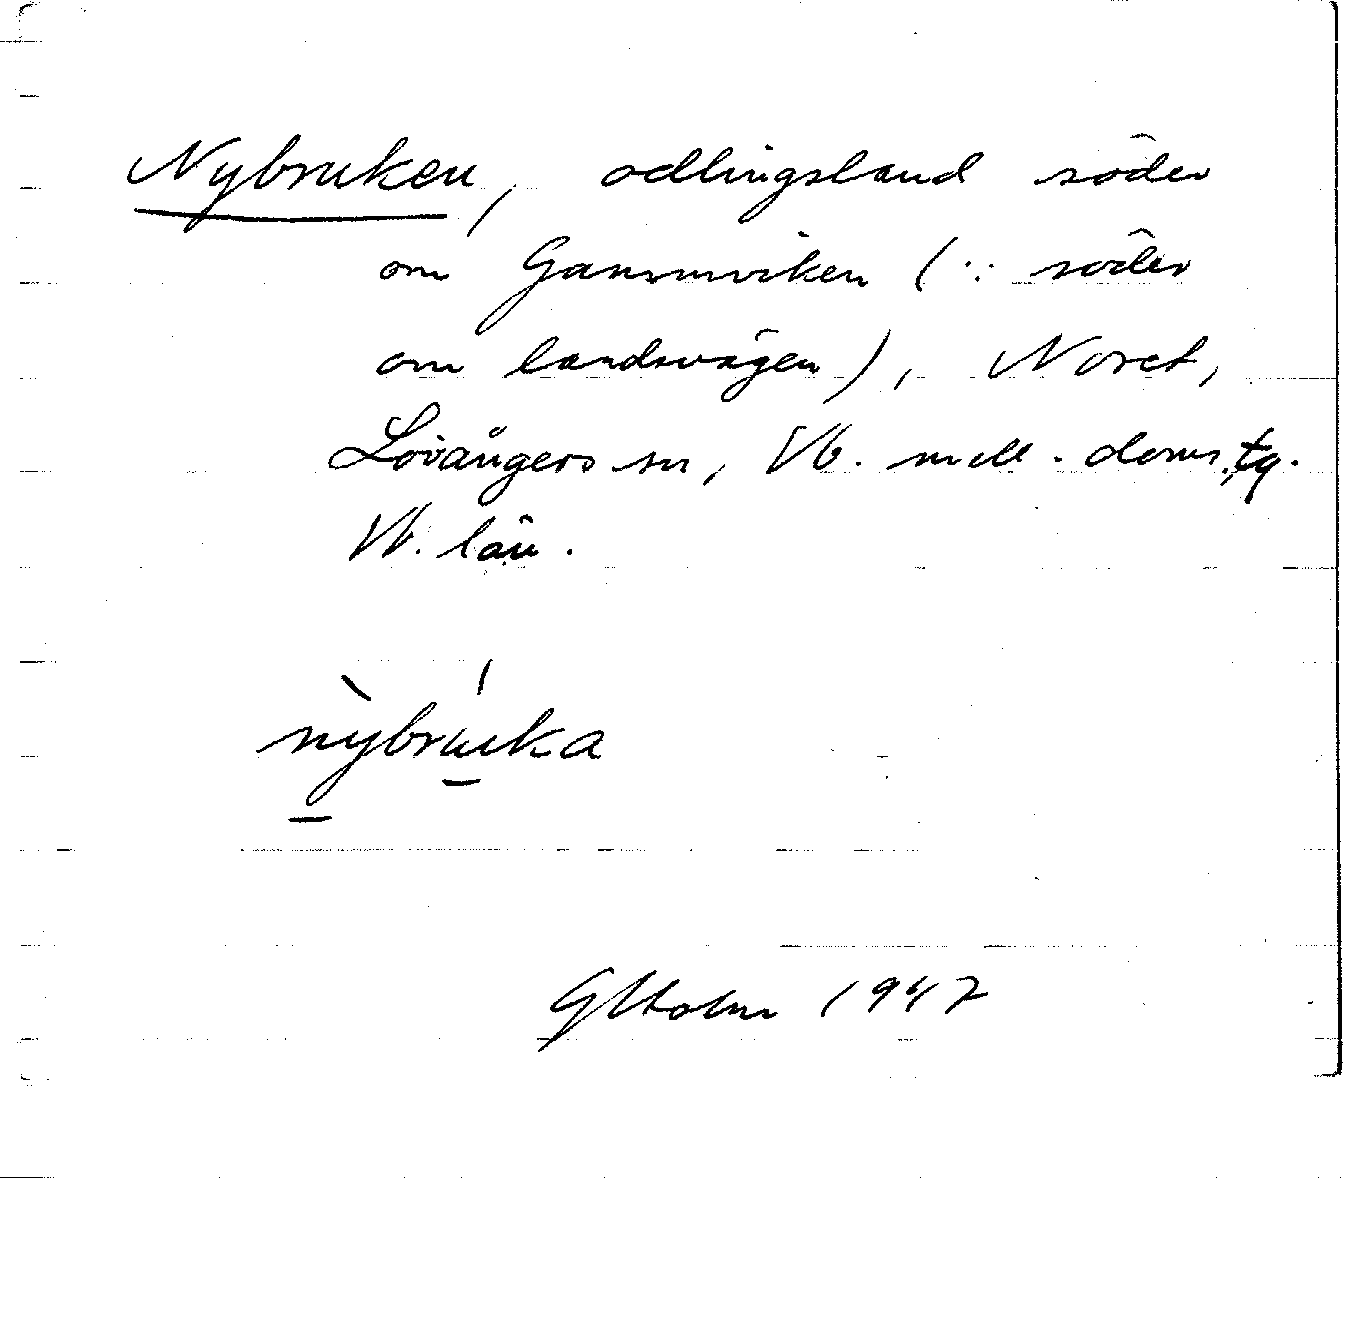 Nybruken, odlingsland söder
om Gammviken (: söder
om landsvägen), Noret,
Lövångers sn, Vb. mell. doms.tg.
Vb. län.
nỳbrúka
GHholm 1947